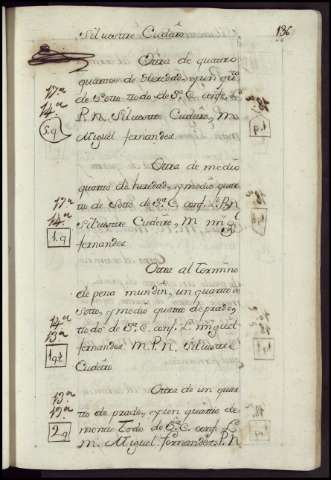 Silvestre Cudeiro
136
Otra de quatro
quartos de Heredad, y un qto
de Soto todo de Sª C. conf. L.
P. N. Silvestre Cudeiro, M.
Miguel fernandez
17ª
14ª
5.q
Otra de medio
quarto de heredad, y medio quar
to de Soto de Sª C. conf. L. P. N.
Silvestre Cudeiro, M. mig
fernandez
17ª
14ª
1.q
Otra al Termino
de pena mundin, un quarto de
Soto, y medio quarto de prado,
todo de S. C. conf. L. miguel
fernandez M. P. N. Silvestre
Cudeiro
14ª
13ª
Otra de un quar
to de prado, y un quarto de
monte Todo de Sª C. conf. L.
M. Miguel Fernandez P. N
13ª
2.q